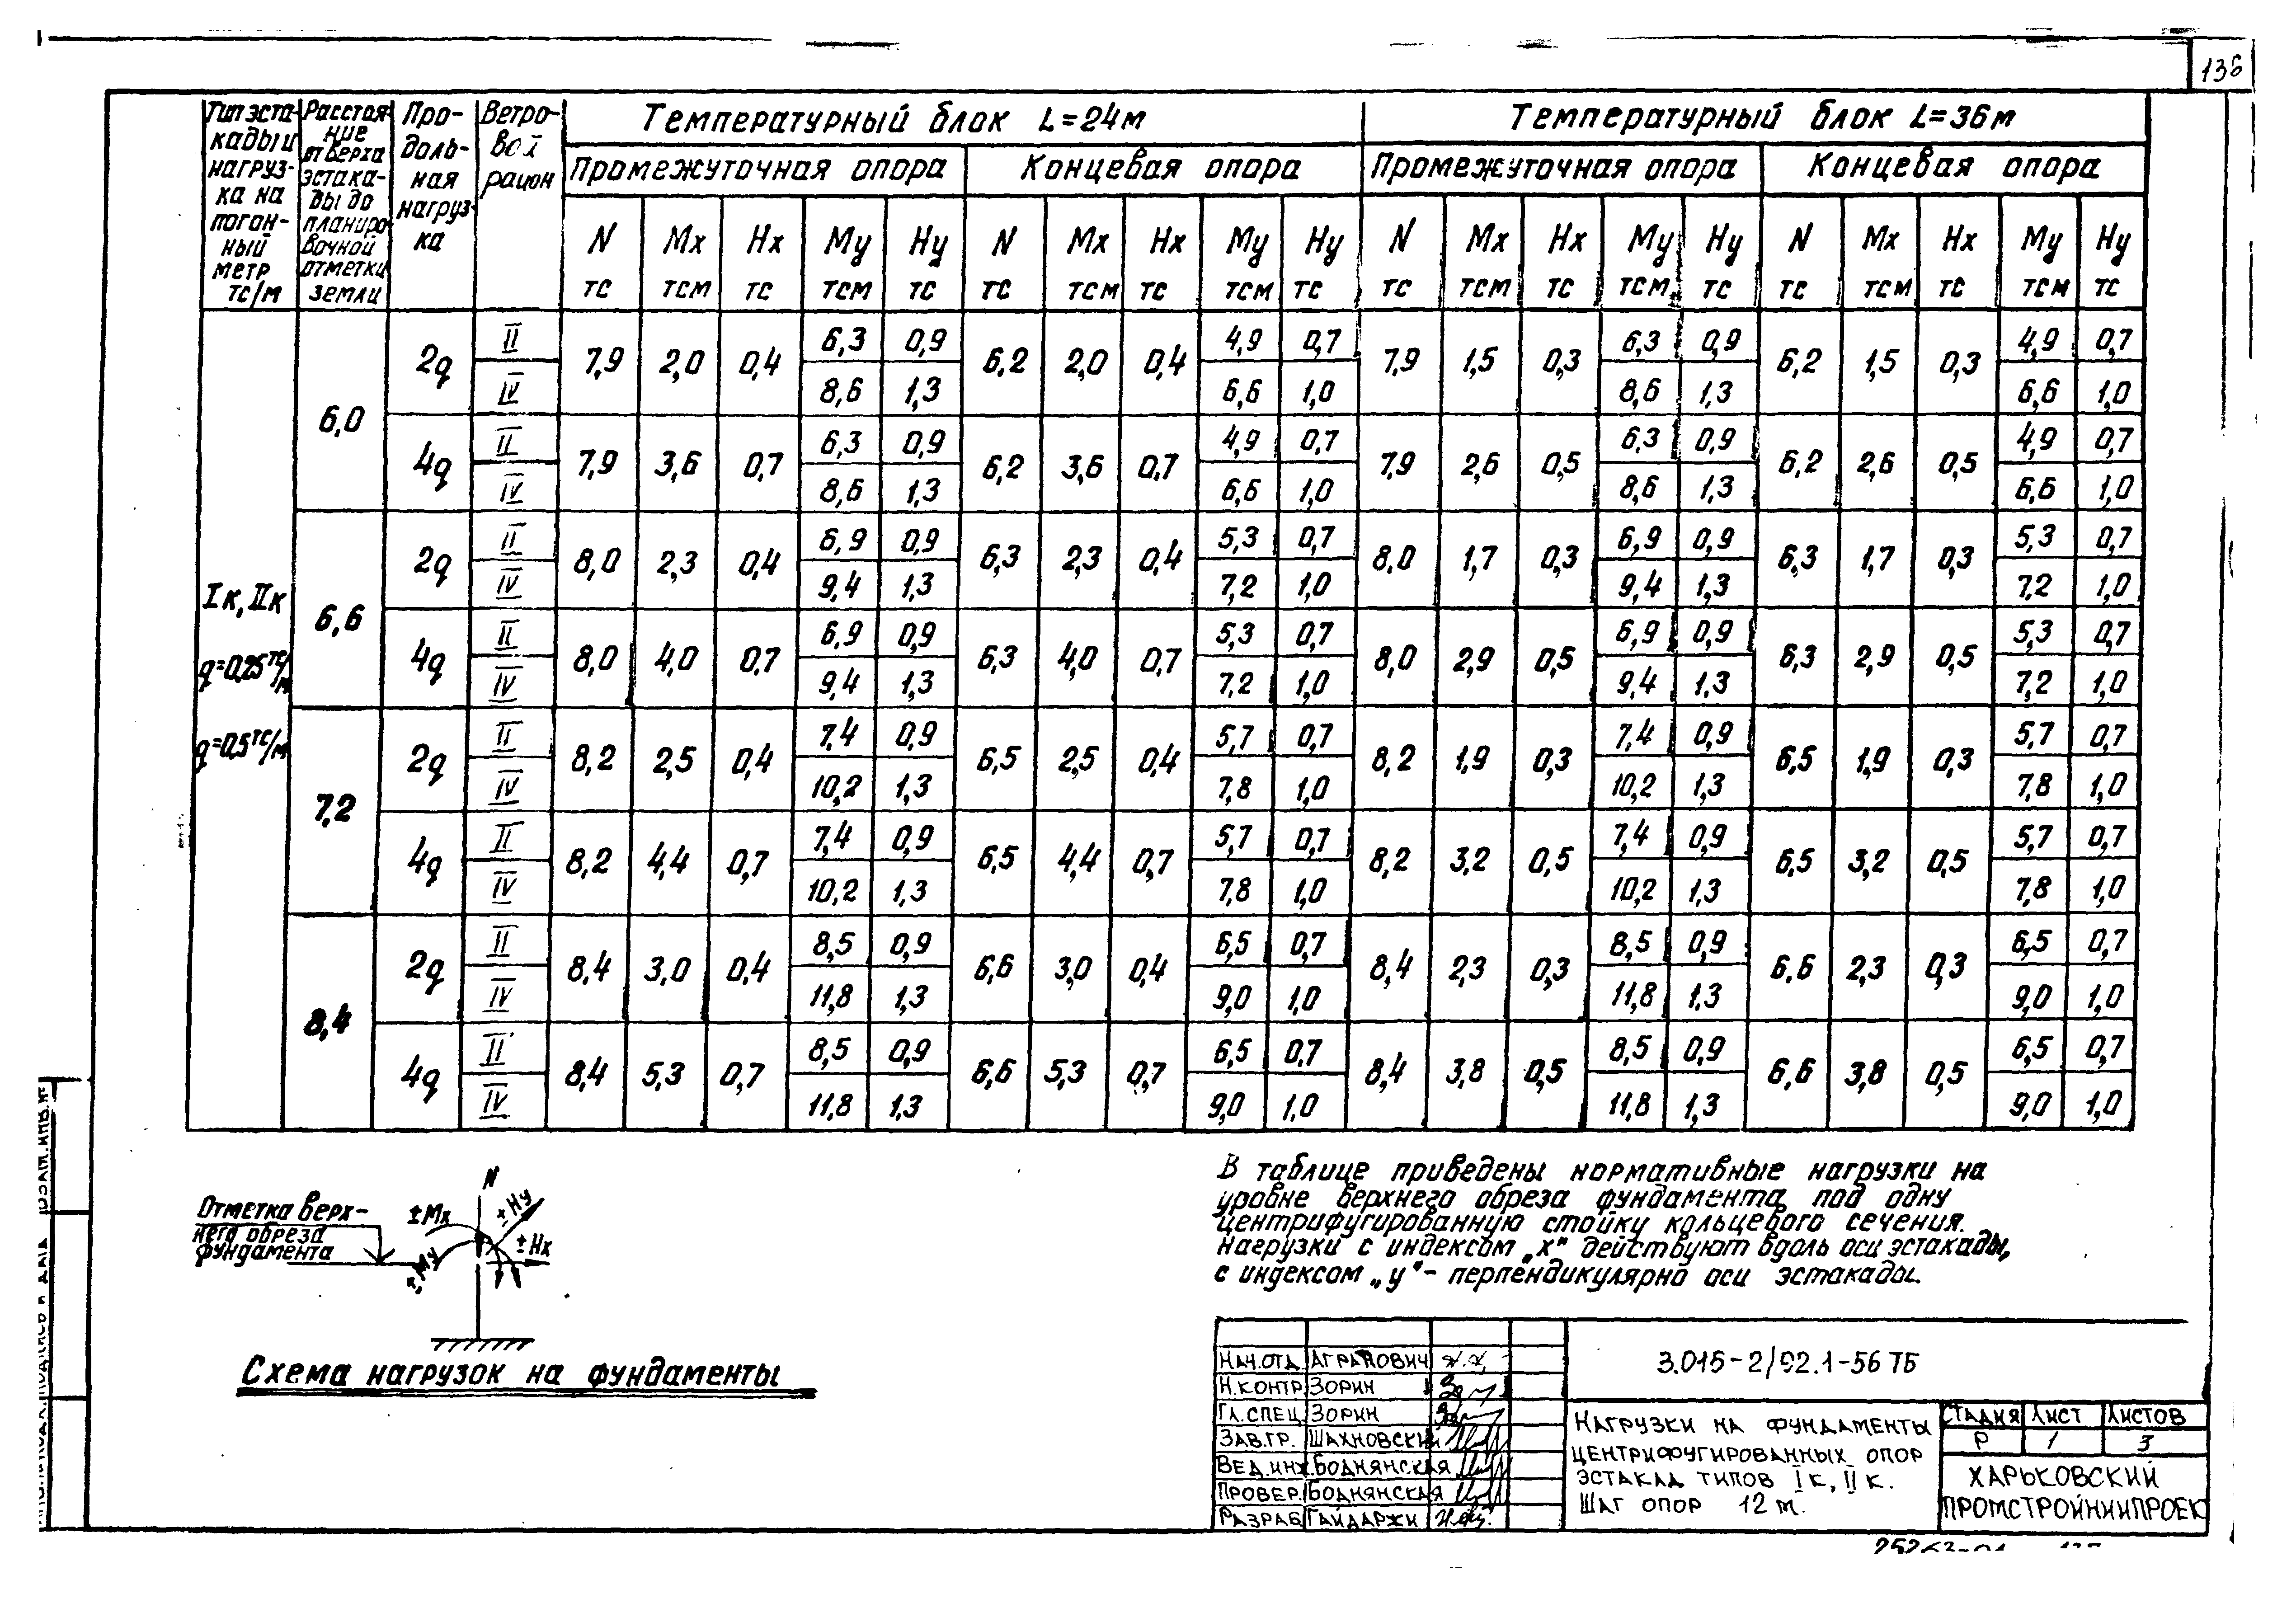 136
Тип эстакады и нагрузка на погонный метр тс/м
Расстояние от верха эстакады до планировочной отметки земли
Продольная нагрузка
Ветровой район
Температурный блок L=24м
Температурный блок L=36м
Промежуточная опора Концевая опора Промежуточная опора Концевая опора
N Mx Hx My Hy N Mx Hx My Hy N Mx Hx My Hy N Mx Hx My Hy
тс тсм тс тсм тс тс тсм тс тсм тс тс тсм тс тсм тс тс тсм тс тсм тс
Iк, IIк
q=0,25тс/м
q=0,5тс/м
6,0
2q II 7,9 2,0 0,4 6,3 0,9 6,2 2,0 0,4 4,9 0,7 7,9 1,5 0,3 6,3 0,9 6,2 1,5 0,3 4,9 0,7
IV 8,6 1,3 6,6 1,0 8,6 1,3 6,6 1,0
4q II 7,9 3,6 0,7 6,3 0,9 6,2 3,6 0,7 4,9 0,7 7,9 2,6 0,5 6,3 0,9 6,2 2,6 0,5 4,9 0,7
IV 8,6 1,3 6,6 1,0 8,6 1,3 6,6 1,0
6,6
2q II 8,0 2,3 0,4 6,9 0,9 6,3 2,3 0,4 5,3 0,7 8,0 1,7 0,3 6,9 0,9 6,3 1,7 0,3 5,3 0,7
IV 9,4 1,3 7,2 1,0 9,4 1,3 7,2 1,0
4q II 8,0 4,0 0,7 6,9 0,9 6,3 4,0 0,7 5,3 0,7 8,0 2,9 0,5 6,9 0,9 6,3 2,9 0,5 5,3 0,7
IV 9,4 1,3 7,2 1,0 9,4 1,3 7,2 1,0
7,2
2q II 8,2 2,5 0,4 7,4 0,9 6,5 2,5 0,4 5,7 0,7 8,2 1,9 0,3 7,4 0,9 6,5 1,9 0,3 5,7 0,7
IV 10,2 1,3 7,8 1,0 10,2 1,3 7,8 1,0
4q II 8,2 4,4 0,7 7,4 0,9 6,5 4,4 0,7 5,7 0,7 8,2 3,2 0,5 7,4 0,9 6,5 3,2 0,5 5,7 0,7
IV 10,2 1,3 7,8 1,0 10,2 1,3 7,8 1,0
8,4
2q II 8,4 3,0 0,4 8,5 0,9 6,6 3,0 0,4 6,5 0,7 8,4 2,3 0,3 8,5 0,9 6,6 2,3 0,3 6,5 0,7
IV 11,8 1,3 9,0 1,0 11,8 1,3 9,0 1,0
4q II 8,4 5,3 0,7 8,5 0,9 6,6 5,3 0,7 6,5 0,7 8,4 3,8 0,5 8,5 0,9 6,6 3,8 0,5 6,5 0,7
IV 11,8 1,3 9,0 1,0 11,8 1,3 9,0 1,0
Отметка верх-
него обреза
фундамента
N
±Mx
±Hy
±My
±Hx
Схема нагрузок на фундаменты
В таблице приведены нормативные нагрузки на
уровне верхнего обреза фундамента под одну
центрифугированную стойку кольцевого сечения.
Нагрузки с индексом „х" действуют вдоль оси эстакады,
с индексом „у" - перпендикулярно оси эстакады.
Нач.отд. Агранович
Н.контр Зорин
Гл.спец. Зорин
Зав.гр. Шахновский
Вед.инж. Боднянская
Провер. Боднянская
Разраб Гайдаржи
3.015-2/92.1-56 ТБ
Нагрузки на фундаменты
центрифугированных опор
эстакад типов Iк, IIк.
Шаг опор 12 м.
Стадия Лист Листов
Р 1 3
Харьковский
Промстройниипроект